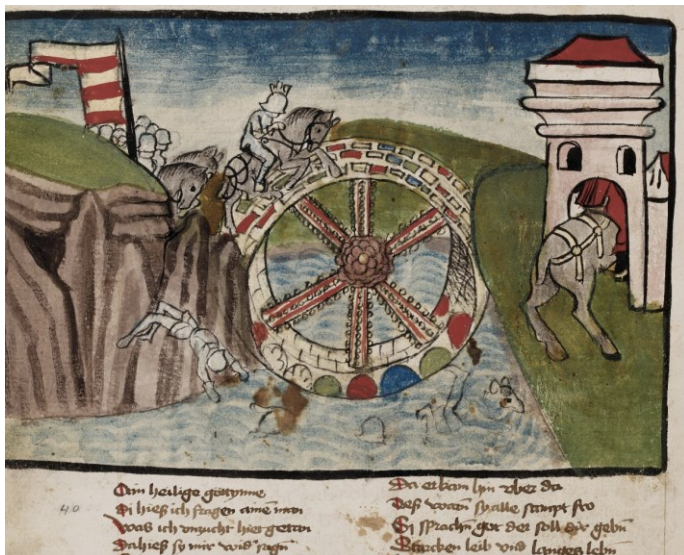 Ain heilige göttynne
Di hieß ich fragen aine man
Was ich vnzucht hier getan
Da hieß sy mir wid' sagn
40
Da er kam hin vber da
Deß warn sy alle sampt fro
Si sprachn got der soll dir gebn
Starcken leib vnd langes lebn